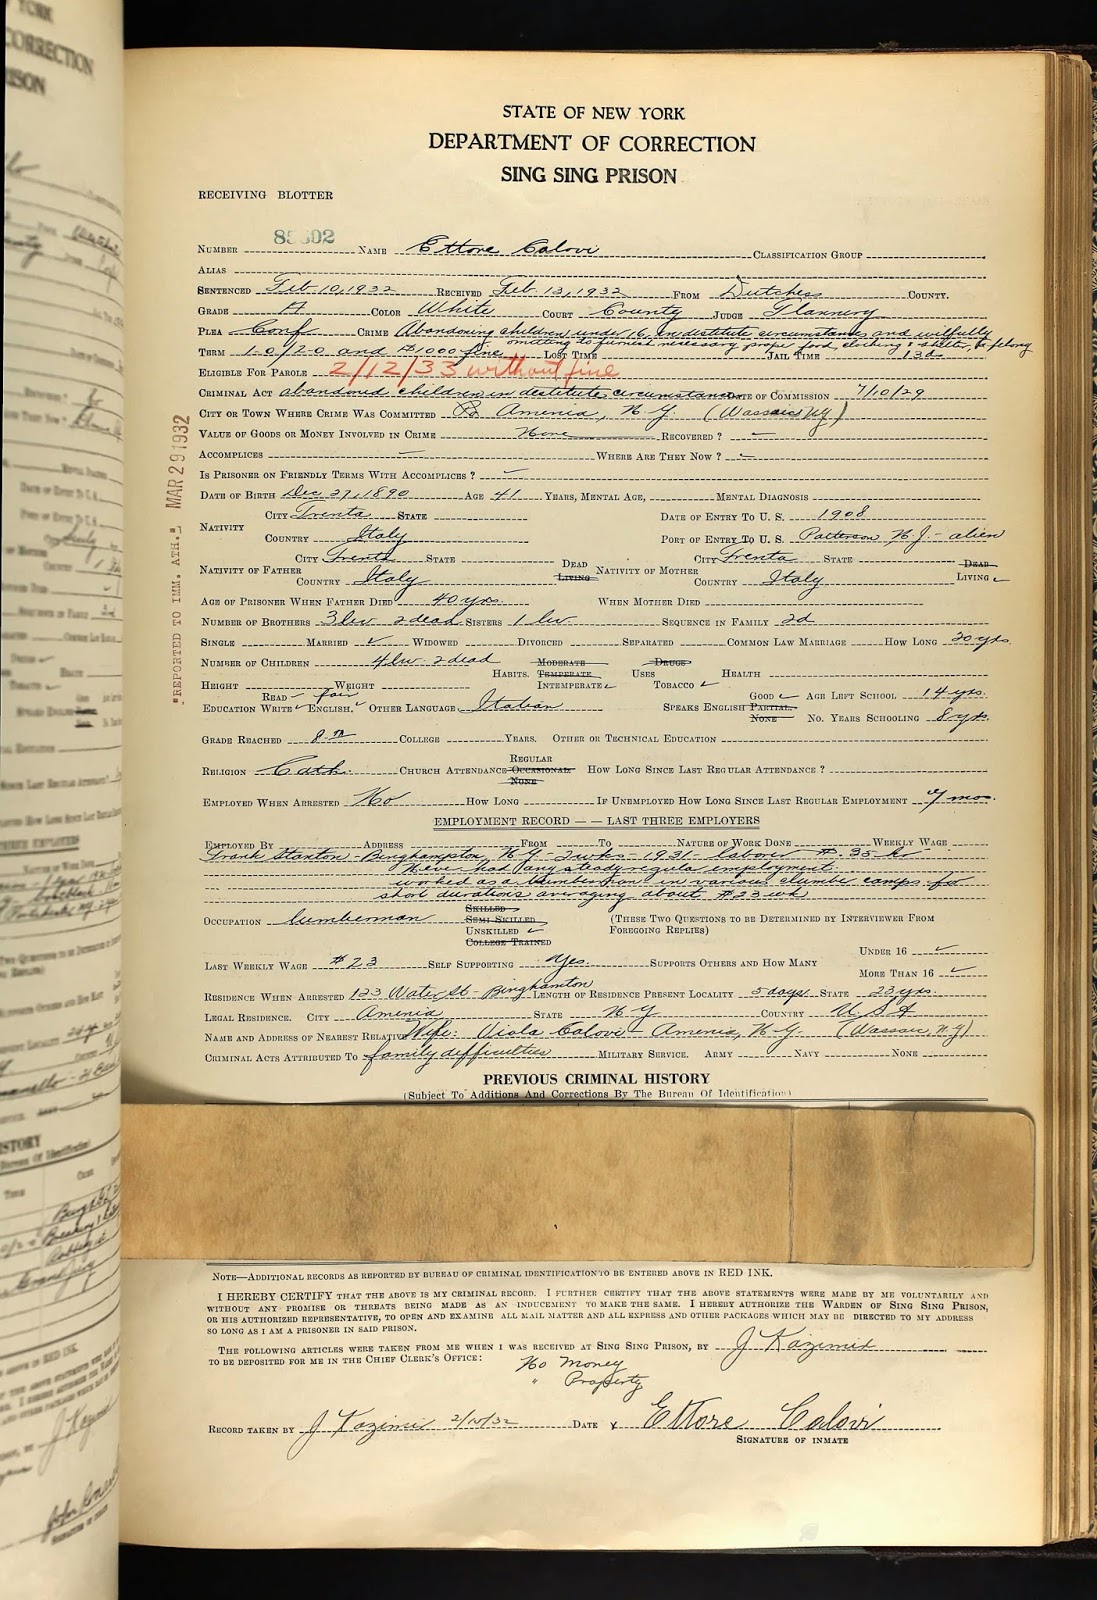 STATE OF NEW YORK
DEPARTMENT OF CORRECTION
SING SING PRISON
RECEIVING BLOTTER
NUMBER NAME Ettore Calovi CLASSIFICATION GROUP
ALIAS
SENTENCED Feb. 10, 1932 RECEIVED Feb. 13, 1932 FROM Dutchess COUNTY.
GRADE A COLOR White COURT County JUDGE Flannery
PLEA Conf CRIME Abandoning children under 16, in destitute circumstances and wilfully
omitting to furnish necessary proper food clothing & shelter, to felony
TERM 1-0/2-0 and $1000 fine LOST TIME JAIL TIME 13d
ELIGIBLE FOR PAROLE 2/12/33 without fine
CRIMINAL ACT abandoned children in destitute circumstances DATE OF COMMISSION 7/10/29
CITY OR TOWN WHERE CRIME WAS COMMITTED Amenia, N.Y. (Wassaic NY)
VALUE OF GOODS OR MONEY INVOLVED IN CRIME None RECOVERED?
ACCOMPLICES WHERE ARE THEY NOW?
IS PRISONER ON FRIENDLY TERMS WITH ACCOMPLICES?
DATE OF BIRTH Dec 27, 1890 AGE 41 YEARS, MENTAL AGE, MENTAL DIAGNOSIS
CITY Trenta STATE DATE OF ENTRY TO U. S. 1908
NATIVITY
COUNTRY Italy PORT OF ENTRY TO U. S. Patterson N.J. - alien
CITY Trenta STATE DEAD CITY Trenta STATE DEAD
NATIVITY OF FATHER LIVING NATIVITY OF MOTHER
COUNTRY Italy COUNTRY Italy LIVING
AGE OF PRISONER WHEN FATHER DIED 40 yrs. WHEN MOTHER DIED
NUMBER OF BROTHERS 3 liv 2 dead SISTERS 1 liv. SEQUENCE IN FAMILY 2d
SINGLE MARRIED ✓ WIDOWED DIVORCED SEPARATED COMMON LAW MARRIAGE HOW LONG 20 yrs.
NUMBER OF CHILDREN 4 liv - 2 dead MODERATE DRUGS
HABITS. TEMPERATE USES HEALTH
HEIGHT WEIGHT INTEMPERATE ✓ TOBACCO ✓
READ ✓ fair GOOD ✓ AGE LEFT SCHOOL 14 yrs.
EDUCATION WRITE ✓ ENGLISH. ✓ OTHER LANGUAGE Italian SPEAKS ENGLISH PARTIAL
NONE NO. YEARS SCHOOLING 8 yrs.
GRADE REACHED 8th COLLEGE YEARS. OTHER OR TECHNICAL EDUCATION
REGULAR
RELIGION Cath. CHURCH ATTENDANCE OCCASIONAL HOW LONG SINCE LAST REGULAR ATTENDANCE?
NONE
EMPLOYED WHEN ARRESTED No HOW LONG IF UNEMPLOYED HOW LONG SINCE LAST REGULAR EMPLOYMENT 7 mos.
EMPLOYMENT RECORD — — LAST THREE EMPLOYERS
EMPLOYED BY ADDRESS FROM TO NATURE OF WORK DONE WEEKLY WAGE
Frank Stanton - Binghampton, N.Y. 2 wks - 1931 - laborer $.35 hr
Never had any steady regular employment
worked as a lumberman in various lumber camps for
short durations averaging about $23 wk
OCCUPATION lumberman SKILLED
SEMI SKILLED (THESE TWO QUESTIONS TO BE DETERMINED BY INTERVIEWER FROM
UNSKILLED ✓ FOREGOING REPLIES)
COLLEGE TRAINED
UNDER 16 ✓
LAST WEEKLY WAGE $23 SELF SUPPORTING Yes. SUPPORTS OTHERS AND HOW MANY
MORE THAN 16 ✓
RESIDENCE WHEN ARRESTED 123 Water St - Binghamton LENGTH OF RESIDENCE PRESENT LOCALITY 5 days STATE 23 yrs.
LEGAL RESIDENCE. CITY Amenia STATE N.Y COUNTRY U.S.A
NAME AND ADDRESS OF NEAREST RELATIVE Wife: Viola Calovi - Amenia, N.Y. (Wassaic, N.Y)
CRIMINAL ACTS ATTRIBUTED TO family difficulties MILITARY SERVICE. ARMY NAVY NONE
PREVIOUS CRIMINAL HISTORY
(Subject To Additions And Corrections By The Bureau Of Identification)
NOTE—ADDITIONAL RECORDS AS REPORTED BY BUREAU OF CRIMINAL IDENTIFICATION TO BE ENTERED ABOVE IN RED INK.
I HEREBY CERTIFY THAT THE ABOVE IS MY CRIMINAL RECORD. I FURTHER CERTIFY THAT THE ABOVE STATEMENTS WERE MADE BY ME VOLUNTARILY AND
WITHOUT ANY PROMISE OR THREATS BEING MADE AS AN INDUCEMENT TO MAKE THE SAME. I HEREBY AUTHORIZE THE WARDEN OF SING SING PRISON,
OR HIS AUTHORIZED REPRESENTATIVE, TO OPEN AND EXAMINE ALL MAIL MATTER AND ALL EXPRESS AND OTHER PACKAGES WHICH MAY BE DIRECTED TO MY ADDRESS
SO LONG AS I AM A PRISONER IN SAID PRISON.
THE FOLLOWING ARTICLES WERE TAKEN FROM ME WHEN I WAS RECEIVED AT SING SING PRISON, BY J Kazimir
TO BE DEPOSITED FOR ME IN THE CHIEF CLERK'S OFFICE: No Money
" Property
RECORD TAKEN BY J Kazimir DATE x Ettore Calovi
SIGNATURE OF INMATE
"REPORTED TO IMM. ATH." MAR 29 1932